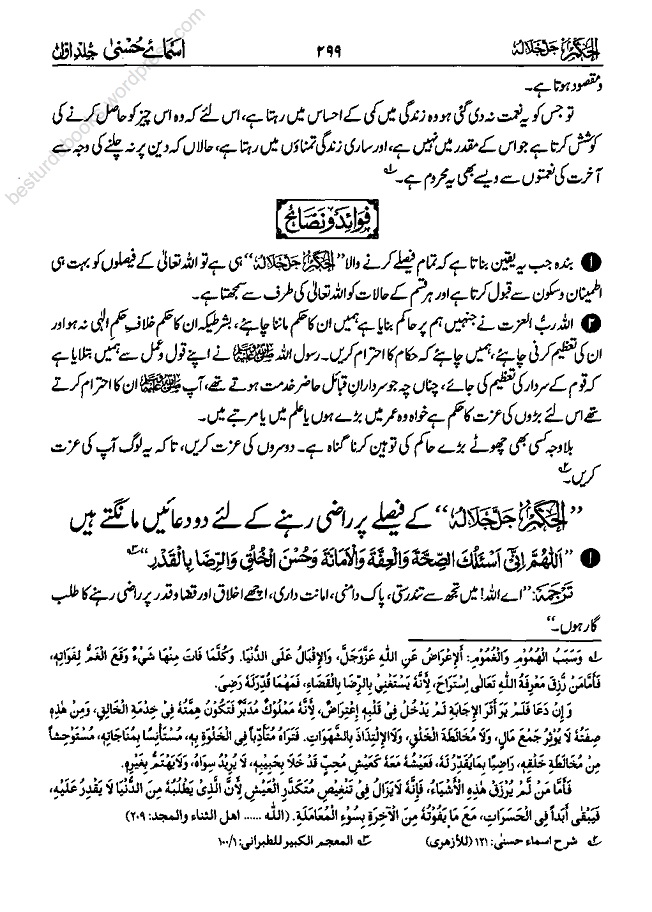 الحکیم جل جلالہ ۲۹۹ اسمائے حسنیٰ جلد اوّل
besturdubooks.wordpress.com
و مقصود ہوتا ہے۔
تو جس کو یہ نعمت نہ دی گئی ہو وہ زندگی میں کمی کے احساس میں رہتا ہے، اس لئے کہ وہ اس چیز کو حاصل کرنے کی
کوشش کرتا ہے جو اس کے مقدر میں نہیں ہے، اور ساری زندگی تمناؤں میں رہتا ہے، حالاں کہ دین پر نہ چلنے کی وجہ سے
آخرت کی نعمتوں سے ویسے بھی یہ محروم ہے۔ لہ
فوائد و نصائح
❶ بندہ جب یہ یقین بناتا ہے کہ تمام فیصلے کرنے والا ”الحکیم جل جلالہ“ ہی ہے تو اللہ تعالیٰ کے فیصلوں کو بہت ہی
اطمینان و سکون سے قبول کرتا ہے اور ہر قسم کے حالات کو اللہ تعالیٰ کی طرف سے سمجھتا ہے۔
❷ اللہ ربُّ العزت نے جنہیں ہم پر حاکم بنایا ہے ہمیں ان کا حکم ماننا چاہئے، بشرطیکہ ان کا حکم خلافِ حکمِ الٰہی نہ ہو اور
ان کی تعظیم کرنی چاہئے، ہمیں چاہئے کہ حکام کا احترام کریں۔ رسول اللہ ﷺ نے اپنے قول و عمل سے ہمیں بتلایا ہے
کہ قوم کے سردار کی تعظیم کی جائے، چناں چہ جو سردارانِ قبائل حاضر خدمت ہوتے تھے، آپ ﷺ ان کا احترام کرتے
تھے اس لئے بڑوں کی عزت کا حکم ہے خواہ وہ عمر میں بڑے ہوں یا علم میں یا مرتبے میں۔
بلاوجہ کسی بھی چھوٹے بڑے حاکم کی توہین کرنا گناہ ہے۔ دوسروں کی عزت کریں، تاکہ یہ لوگ آپ کی عزت
کریں۔ ۲ہ
”الحکیم جل جلالہ“ کے فیصلے پر راضی رہنے کے لئے دو دعائیں مانگتے ہیں
❶ ”اَللّٰهُمَّ اِنِّیْ اَسْئَلُكَ الصِّحَّةَ وَالْعِفَّةَ وَالْاَمَانَةَ وَحُسْنَ الْخُلُقِ وَالرِّضَا بِالْقَدْرِ“ ۳ہ
ترجمہ: ”اے اللہ! میں تجھ سے تندرستی، پاک دامنی، امانت داری، اچھے اخلاق اور قضا و قدر پر راضی رہنے کا طلب
گار ہوں۔“
لہ وَسَبَبُ الْهُمُوْمِ وَالْغُمُوْمِ: اَلْاِعْرَاضُ عَنِ اللهِ عَزَّوَجَلَّ، وَالْاِقْبَالُ عَلَى الدُّنْيَا. وَكُلَّمَا فَاتَ مِنْهَا شَيْءٌ وَقَعَ الْغَمُّ لِفَوَاتِهِ،
فَاَمَّا مَنْ رُزِقَ مَعْرِفَةَ اللهِ تَعَالٰى اِسْتَرَاحَ، لِاَنَّهُ يَسْتَغْنِيْ بِالرِّضَا بِالْقَضَاءِ، فَمَهْمَا قُدِّرَ لَهُ رَضِيَ.
وَ اِنْ دَعَا فَلَمْ يَرَ اَثَرَ الْاِجَابَةِ لَمْ يَدْخُلْ فِيْ قَلْبِهِ اِعْتِرَاضٌ، لِاَنَّهُ مَمْلُوْكٌ مُدَبَّرٌ فَتَكُوْنُ هِمَّتُهُ فِيْ خِدْمَةِ الْخَالِقِ، وَمِنْ هٰذِهِ
صِفَتُهُ لَا يُؤْثِرُ جَمْعَ مَالٍ، وَلَا مُخَالَطَةَ الْخَلْقِ، وَلَا الْاِلْتِذَاذَ بِالشَّهَوَاتِ. فَتَرَاهُ مُتَأَدِّبًا فِي الْخَلْوَةِ بِهِ، مُسْتَأْنِسًا بِمُنَاجَاتِهِ، مُسْتَوْحِشًا
مِنْ مُخَالَطَةِ خَلْقِهِ، رَاضِيًا بِمَا يُقَدِّرُ لَهُ، فَعَيْشُهُ مَعَهُ كَعَيْشِ مُحِبٍّ قَدْ خَلَا بِحَبِيْبِهِ، لَا يُرِيْدُ سِوَاهُ، وَلَا يَهْتَمُّ بِغَيْرِهِ.
فَاَمَّا مَنْ لَمْ يُرْزَقْ هٰذِهِ الْاَشْيَاءَ، فَاِنَّهُ لَا يَزَالُ فِيْ تَنْغِيْصٍ مُتَكَدِّرَ الْعَيْشِ لِاَنَّ الَّذِيْ يَطْلُبُهُ مِنَ الدُّنْيَا لَا يَقْدِرُ عَلَيْهِ،
فَيَبْقٰى اَبَدًا فِي الْحَسَرَاتِ، مَعَ مَا يَفُوْتُهُ مِنَ الْاٰخِرَةِ بِسُوْءِ الْمُعَامَلَةِ. (الله ...... اهل الثناء والمجد: ۲۰۹)
۲ہ شرح اسماء حسنی: ۱۲۱ (للأزهري) ۳ہ المعجم الكبير للطبراني: ۱۰۰/۱